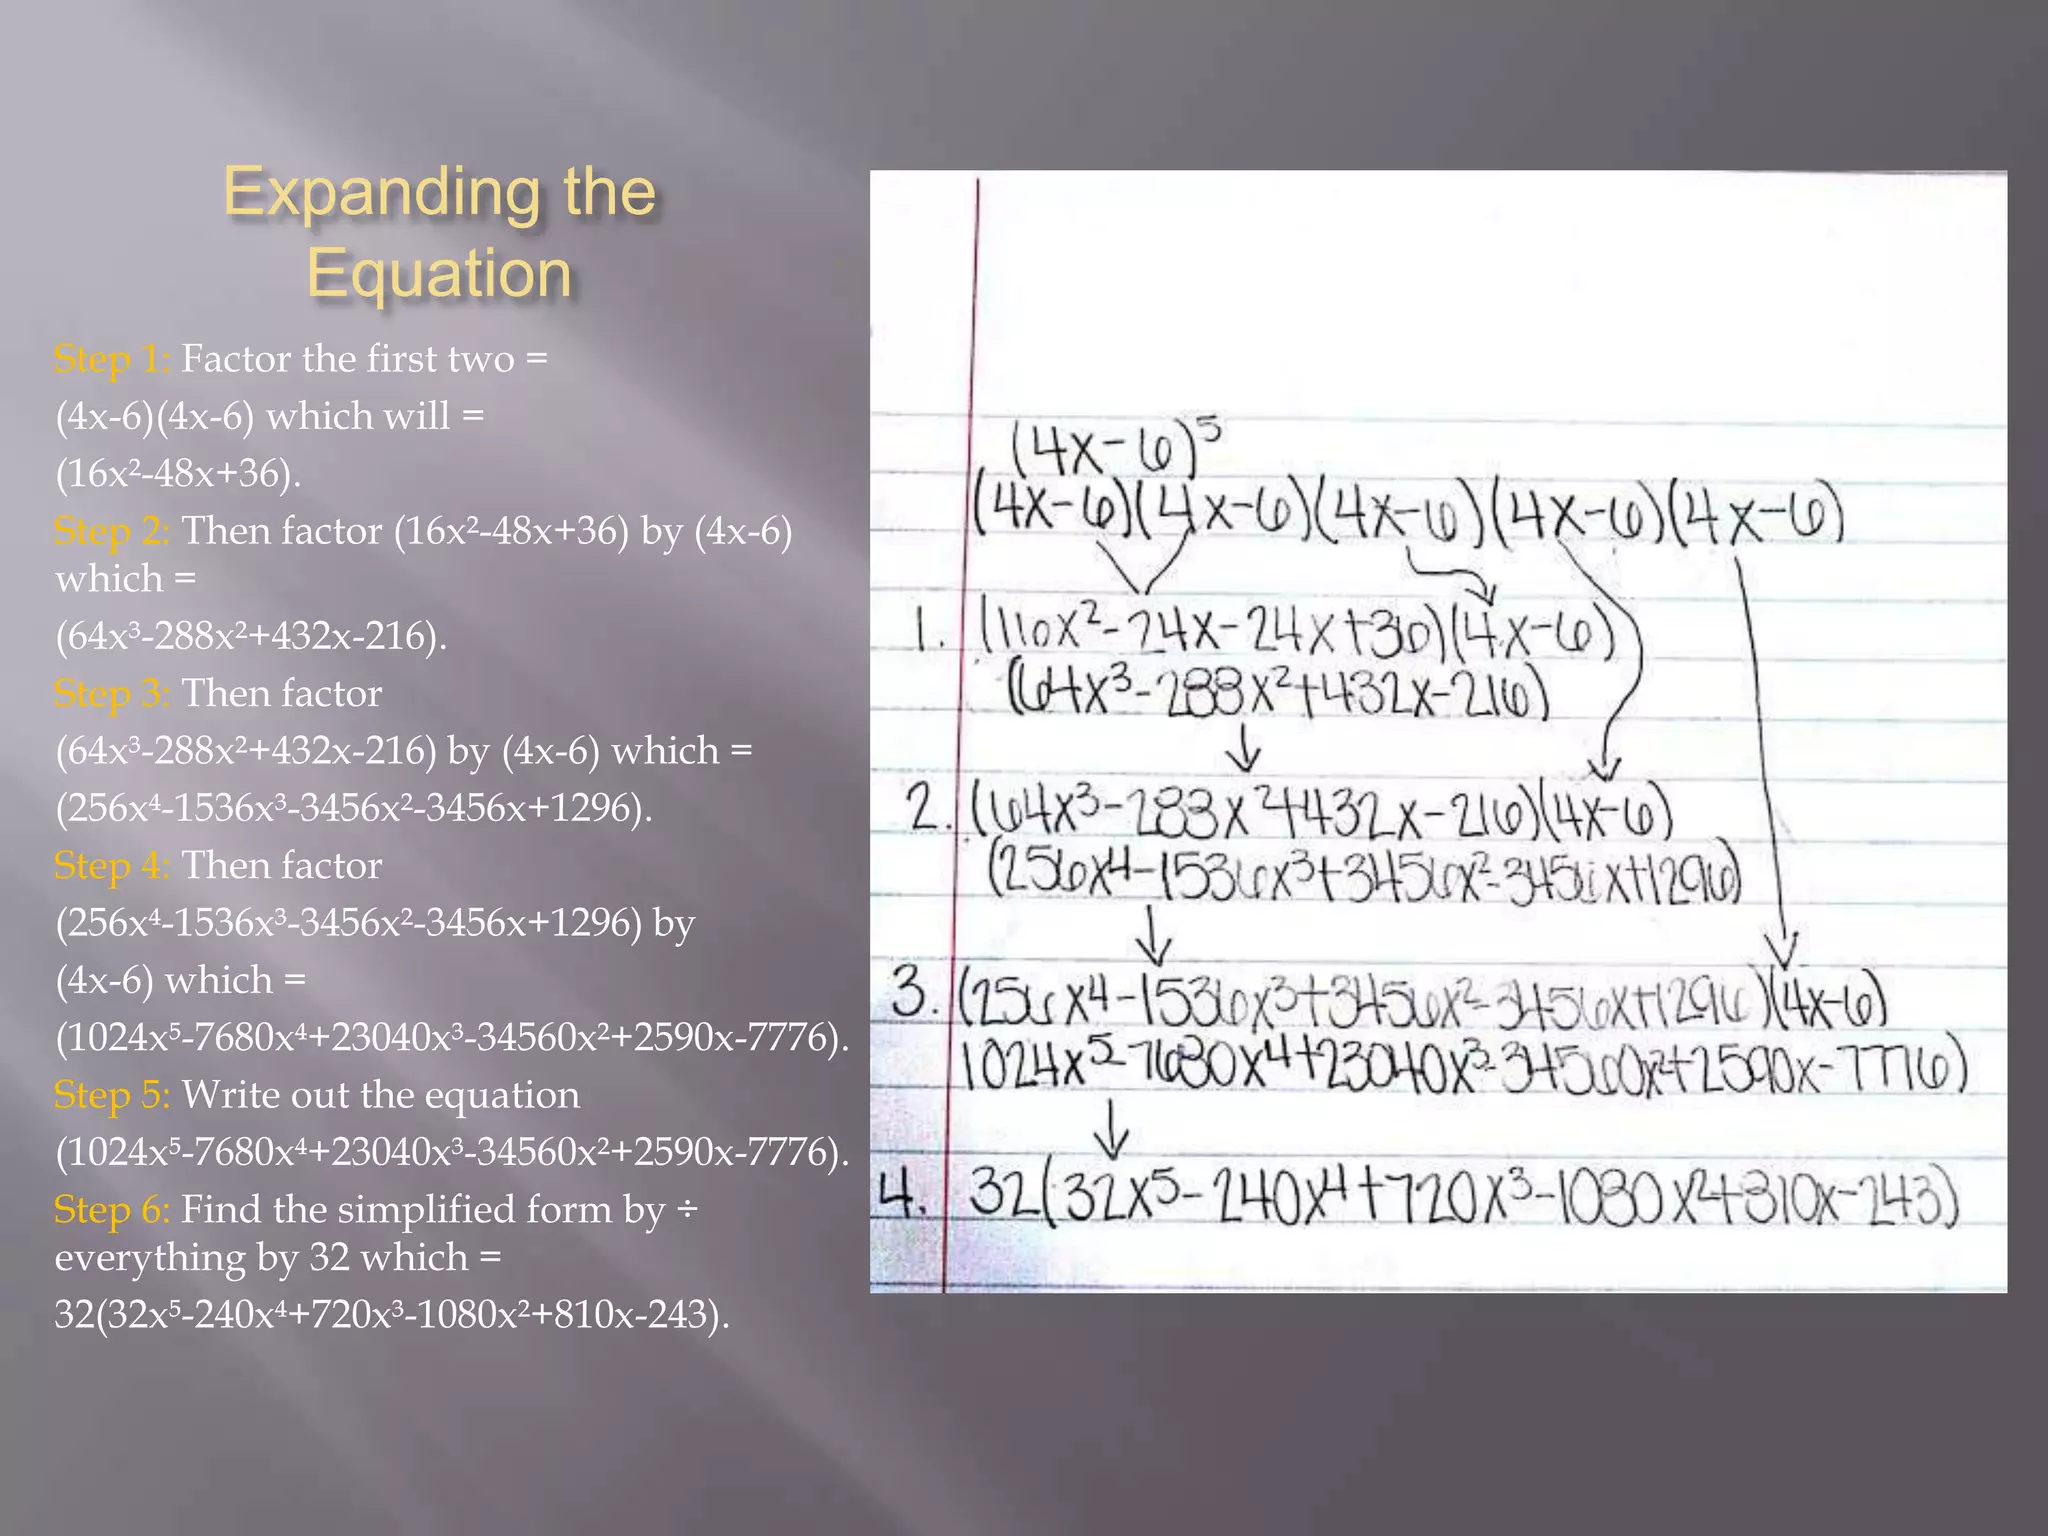 Expanding the
Equation
Step 1: Factor the first two =
(4x-6)(4x-6) which will =
(16x²-48x+36).
Step 2: Then factor (16x²-48x+36) by (4x-6)
which =
(64x³-288x²+432x-216).
Step 3: Then factor
(64x³-288x²+432x-216) by (4x-6) which =
(256x⁴-1536x³-3456x²-3456x+1296).
Step 4: Then factor
(256x⁴-1536x³-3456x²-3456x+1296) by
(4x-6) which =
(1024x⁵-7680x⁴+23040x³-34560x²+2590x-7776).
Step 5: Write out the equation
(1024x⁵-7680x⁴+23040x³-34560x²+2590x-7776).
Step 6: Find the simplified form by ÷
everything by 32 which =
32(32x⁵-240x⁴+720x³-1080x²+810x-243).
(4x-6)⁵
(4x-6)(4x-6)(4x-6)(4x-6)(4x-6)
1. (16x²-24x-24x+36)(4x-6)
(64x³-288x²+432x-216)
2. (64x³-288x²+432x-216)(4x-6)
(256x⁴-1536x³+3456x²-3456x+1296)
3. (256x⁴-1536x³+3456x²-3456x+1296)(4x-6)
1024x⁵-7680x⁴+23040x³-34560x²+2590x-7776)
4. 32(32x⁵-240x⁴+720x³-1080x²+810x-243)